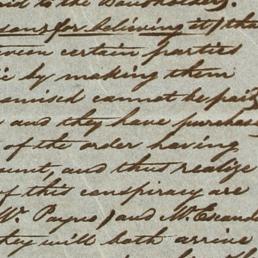 id to the Bondholders.
sons for believing it) tha
tween certain parties
ic by making them
omised cannot be paid
and they have purchase
of the order having
ount, and thus realize
of this conspiracy are
Mr. Payno) and Mr. Escand
they will both arrive